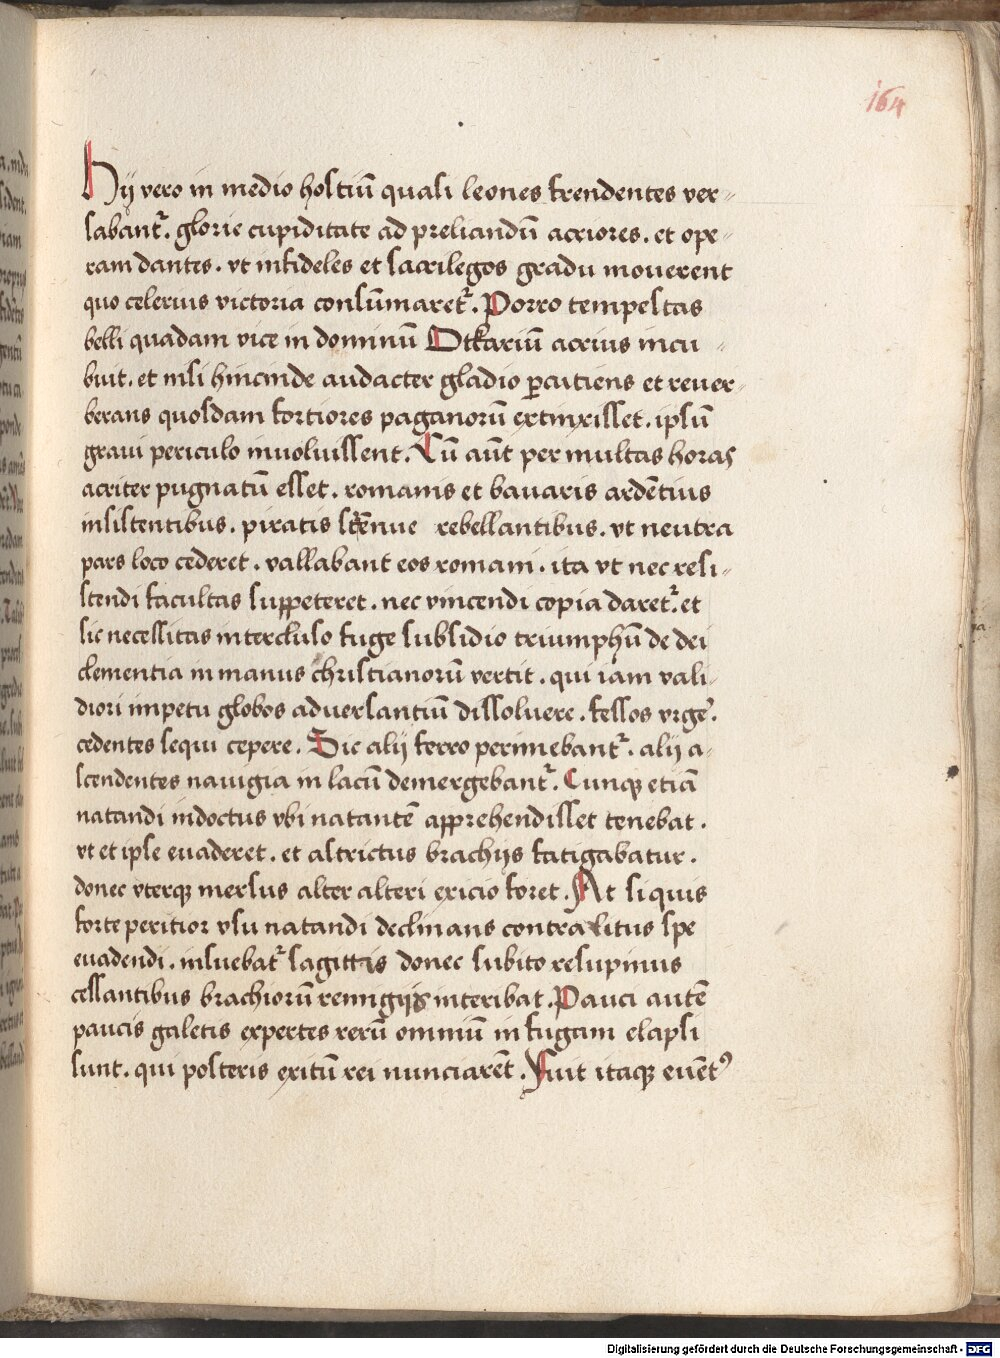 164
Hij vero in medio hostiū quasi leones frendentes ver-
sabant᷑. glorie cupiditate ad preliandū acriores. et ope-
ram dantes. vt infideles et sacrilegos gradu mouerent
quo celerius victoria consūmaret᷑. Porro tempestas
belli quadam vice in dominū Otkariū acrius incu-
buit. et nisi hincinde audacter gladio ꝑcutiens et reuer-
berans quosdam fortiores paganorū extinxisset. ipsū
graui periculo inuoluissent. Cū aūt per multas horas
acriter pugnatū esset. romanis et bauaris ardētius
insistentibus. piratis strēnue rebellantibus. vt neutra
pars loco cederet. vallabant eos romani. ita vt nec resi-
stendi facultas suppeteret. nec vincendi copia daret᷑. et
sic necessitas intercluso fuge subsidio triumphū de dei
clementia in manus christianorū vertit. qui iam vali-
diori impetu globos aduersantiū dissoluere. fessos vrgeꝛ̉.
cedentes sequi cepere. Sic alij ferro perimebant᷑. alij a-
scendentes nauigia in lacū demergebant᷑. Cunqꝫ etiā
natandi indoctus vbi natantē apprehendisset tenebat.
vt et ipse euaderet. et astrictus brachijs fatigabatur.
donec vterqꝫ mersus alter alteri exicio foret. At si quis
forte peritior vsu natandi declinans contra litus spe
euadendi. insuebat᷑ sagittis donec subito resupinus
cessantibus brachiorū remigijs interibat. Pauci autē
paucis galetis expertes rerū omniū in fugam elapsi
sunt. qui posteris exitū rei nunciarēt. Fuit itaqꝫ euētꝰ
Digitalisierung gefördert durch die Deutsche Forschungsgemeinschaft - DFG